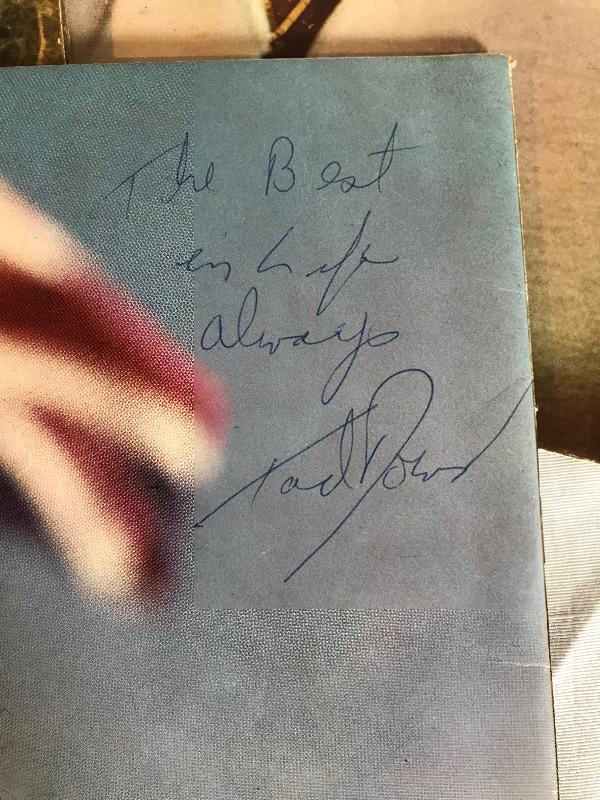 The Best
in Life
always
Tad Down